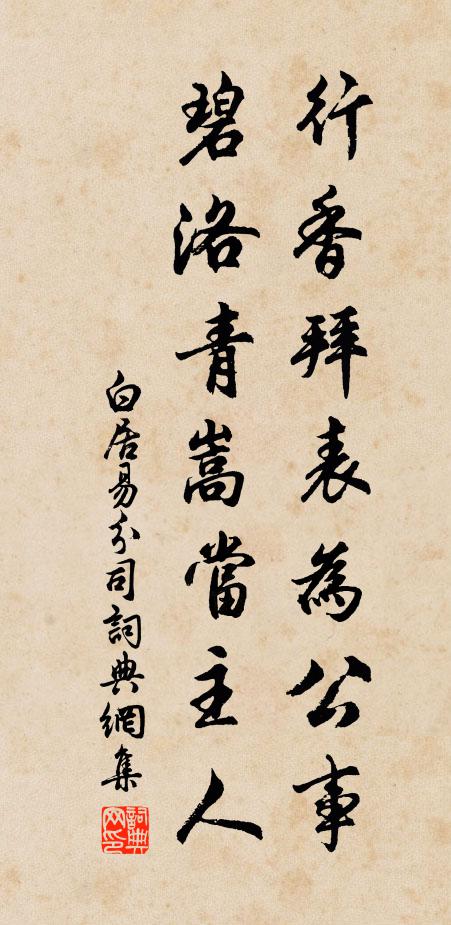 行香拜表為公事
碧洛青嵩當主人
白居易分司詞典網集
詞典網印